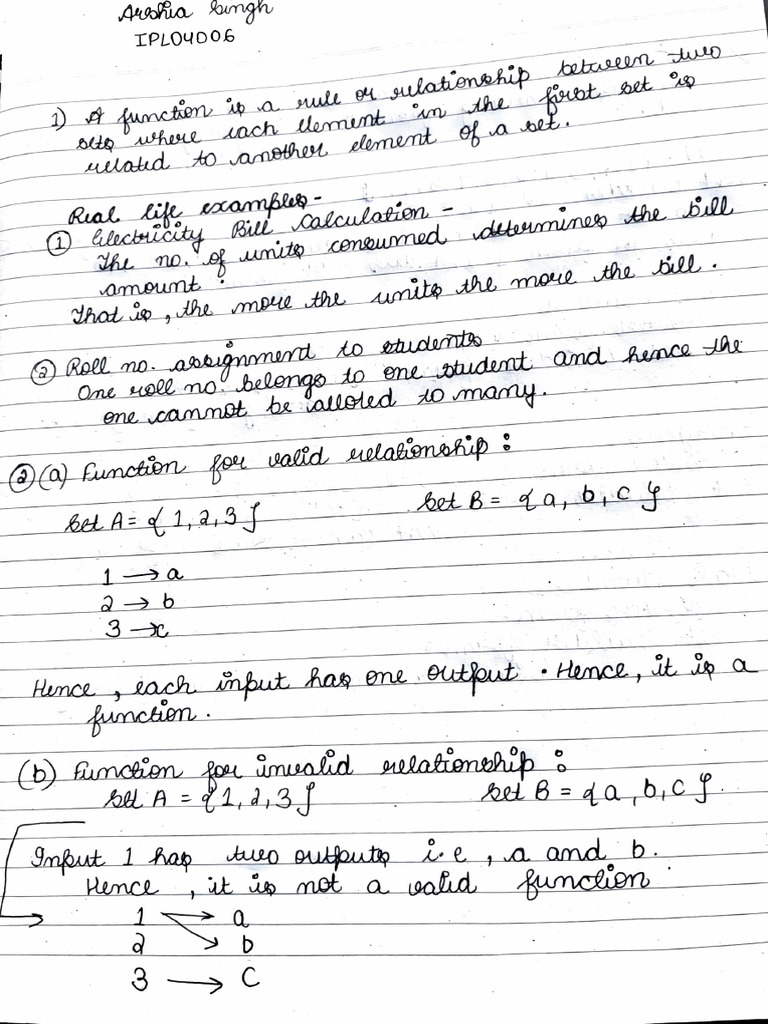 Arshia Singh
IPL04006
1) A function is a rule or relationship between two
sets where each element in the first set is
related to another element of a set.
Real life examples-
① Electricity Bill Calculation -
The no. of units consumed determines the bill
amount.
That is, the more the units the more the bill.
② Roll no. assignment to students
One roll no. belongs to one student and hence the
one cannot be alloted to many.
② (a) Function for valid relationship:
Set A = {1, 2, 3} Set B = {a, b, c}
1 → a
2 → b
3 → c
Hence, each input has one output. Hence, it is a
function.
(b) Function for invalid relationship:
Set A = {1, 2, 3} Set B = {a, b, c}.
Input 1 has two outputs i.e, a and b.
Hence, it is not a valid function.
1 → a
2 b
3 → C